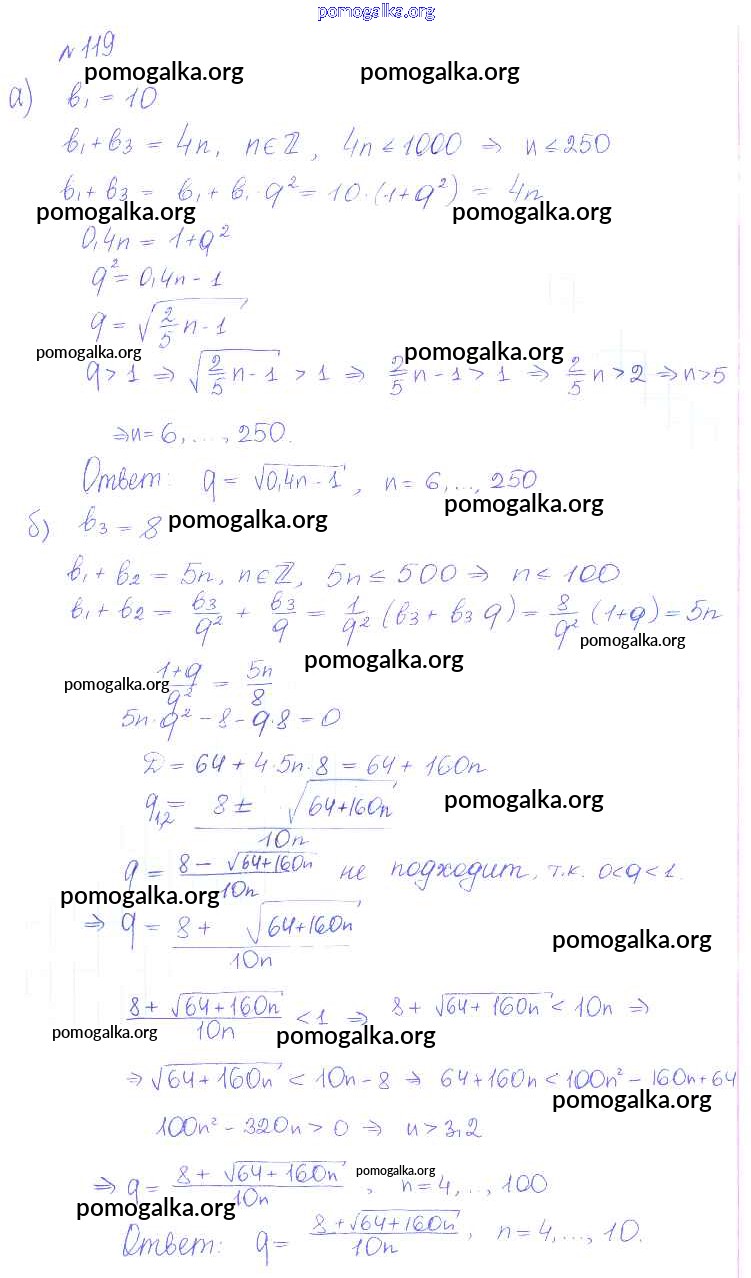 pomogalka.org
№119
pomogalka.org pomogalka.org
а) b₁ = 10
b₁ + b₃ = 4n, n∈ℤ, 4n ≤ 1000 ⇒ n ≤ 250
b₁ + b₃ = b₁ + b₁·q² = 10·(1+q²) = 4n
pomogalka.org pomogalka.org
0,4n = 1+q²
q² = 0,4n - 1
q = √(2/5 n - 1)
pomogalka.org pomogalka.org
q > 1 ⇒ √(2/5 n - 1) > 1 ⇒ 2/5 n - 1 > 1 ⇒ 2/5 n > 2 ⇒ n > 5
⇒ n = 6, ..., 250.
Ответ: q = √(0,4n - 1), n = 6, ..., 250
pomogalka.org
б) b₃ = 8 pomogalka.org
b₁ + b₂ = 5n, n∈ℤ, 5n ≤ 500 ⇒ n ≤ 100
b₁ + b₂ = b₃/q² + b₃/q = 1/q² (b₃ + b₃ q) = 8/q² (1+q) = 5n
pomogalka.org
pomogalka.org
(1+q)/q² = 5n/8
pomogalka.org
5n·q² - 8 - q·8 = 0
D = 64 + 4·5n·8 = 64 + 160n
q₁,₂ = (8 ± √(64+160n))/10n
pomogalka.org
q = (8 - √(64+160n))/10n не подходит, т.к. 0<q<1.
pomogalka.org
⇒ q = (8 + √(64+160n))/10n
pomogalka.org
(8 + √(64+160n))/10n < 1 ⇒ 8 + √(64+160n) < 10n ⇒
pomogalka.org pomogalka.org
⇒ √(64+160n) < 10n - 8 ⇒ 64+160n < 100n² - 160n + 64
pomogalka.org
100n² - 320n > 0 ⇒ n > 3,2
pomogalka.org
⇒ q = (8 + √(64+160n))/10n, n = 4, .., 100
pomogalka.org
Ответ: q = (8 + √(64+160n))/10n, n = 4, ..., 10.